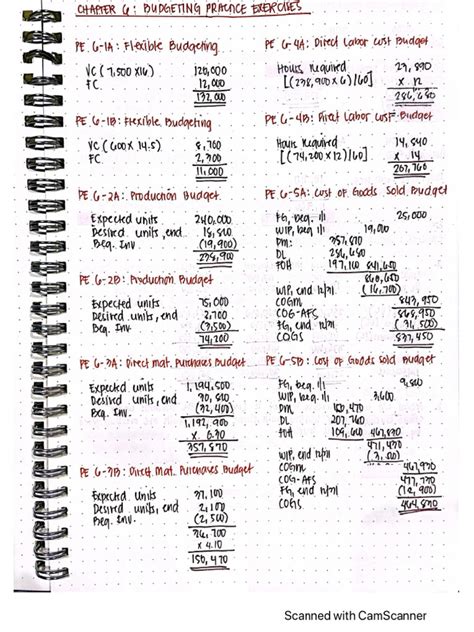 CHAPTER 6: BUDGETING PRACTICE EXERCISES
PE 6-1A: Flexible Budgeting
VC (7,500 X16) 120,000
FC 12,000
132,000
PE 6-1B: Flexible Budgeting
VC (600 X 14.5) 8,700
FC 2,300
11,000
PE 6-2A: Production Budget
Expected units 240,000
Desired units, end
Beg. Inv (19,900)
238,900
PE 6-2B: Production Budget
Expected units 75,000
Desired units, end 2,700
Beg. Inv (3,500)
74,200
PE 6-3A: Direct mat. Purchases Budget
Expected units 1,194,500
Desired units, end
Beg. Inv. (32,400)
1,192,900
x 0.30
357,870
PE 6-3B: Direct Mat. Purchases Budget
Expected units 37,100
Desired units, end 2,100
Beg. Inv. (2,500)
36,700
x 4.10
150,470
PE 6-4A: Direct Labor Cost Budget
Hours Required 23,890
[(238,900 x 6)/60] x 12
286,680
PE 6-4B: Direct Labor Cost Budget
Hours Required 14,840
[(74,200 x 12)/60] x 14
207,760
PE 6-5A: Cost of Goods Sold Budget
FG, beg. 1/1 25,000
WIP, beg 1/1 19,000
DM: 357,870
DL 286,680
FOH 197,100 841,650
860,650
WIP, end 12/31 (16,700)
COGM 843,950
COG-AFS 868,950
FG, end 12/31 (31,500)
COGS 837,450
PE 6-5B: Cost of Goods Sold Budget
FG, beg. 1/1
WIP, beg. 1/1 3,600
DM 150,470
DL 207,760
FOH 109,600 467,830
471,430
WIP, end 12/31
COGM
COG-AFS 477,730
FG, end 12/31 (12,900)
COGS 464,830
Scanned with CamScanner